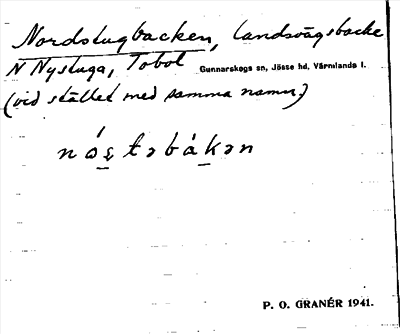 Nordstugbacken, landsvägsbacke
N Nystuga, Tobol Gunnarskogs sn, Jösse hd, Värmlands l.
(vid stället med samma namn)
P. O. GRANÉR 1941.